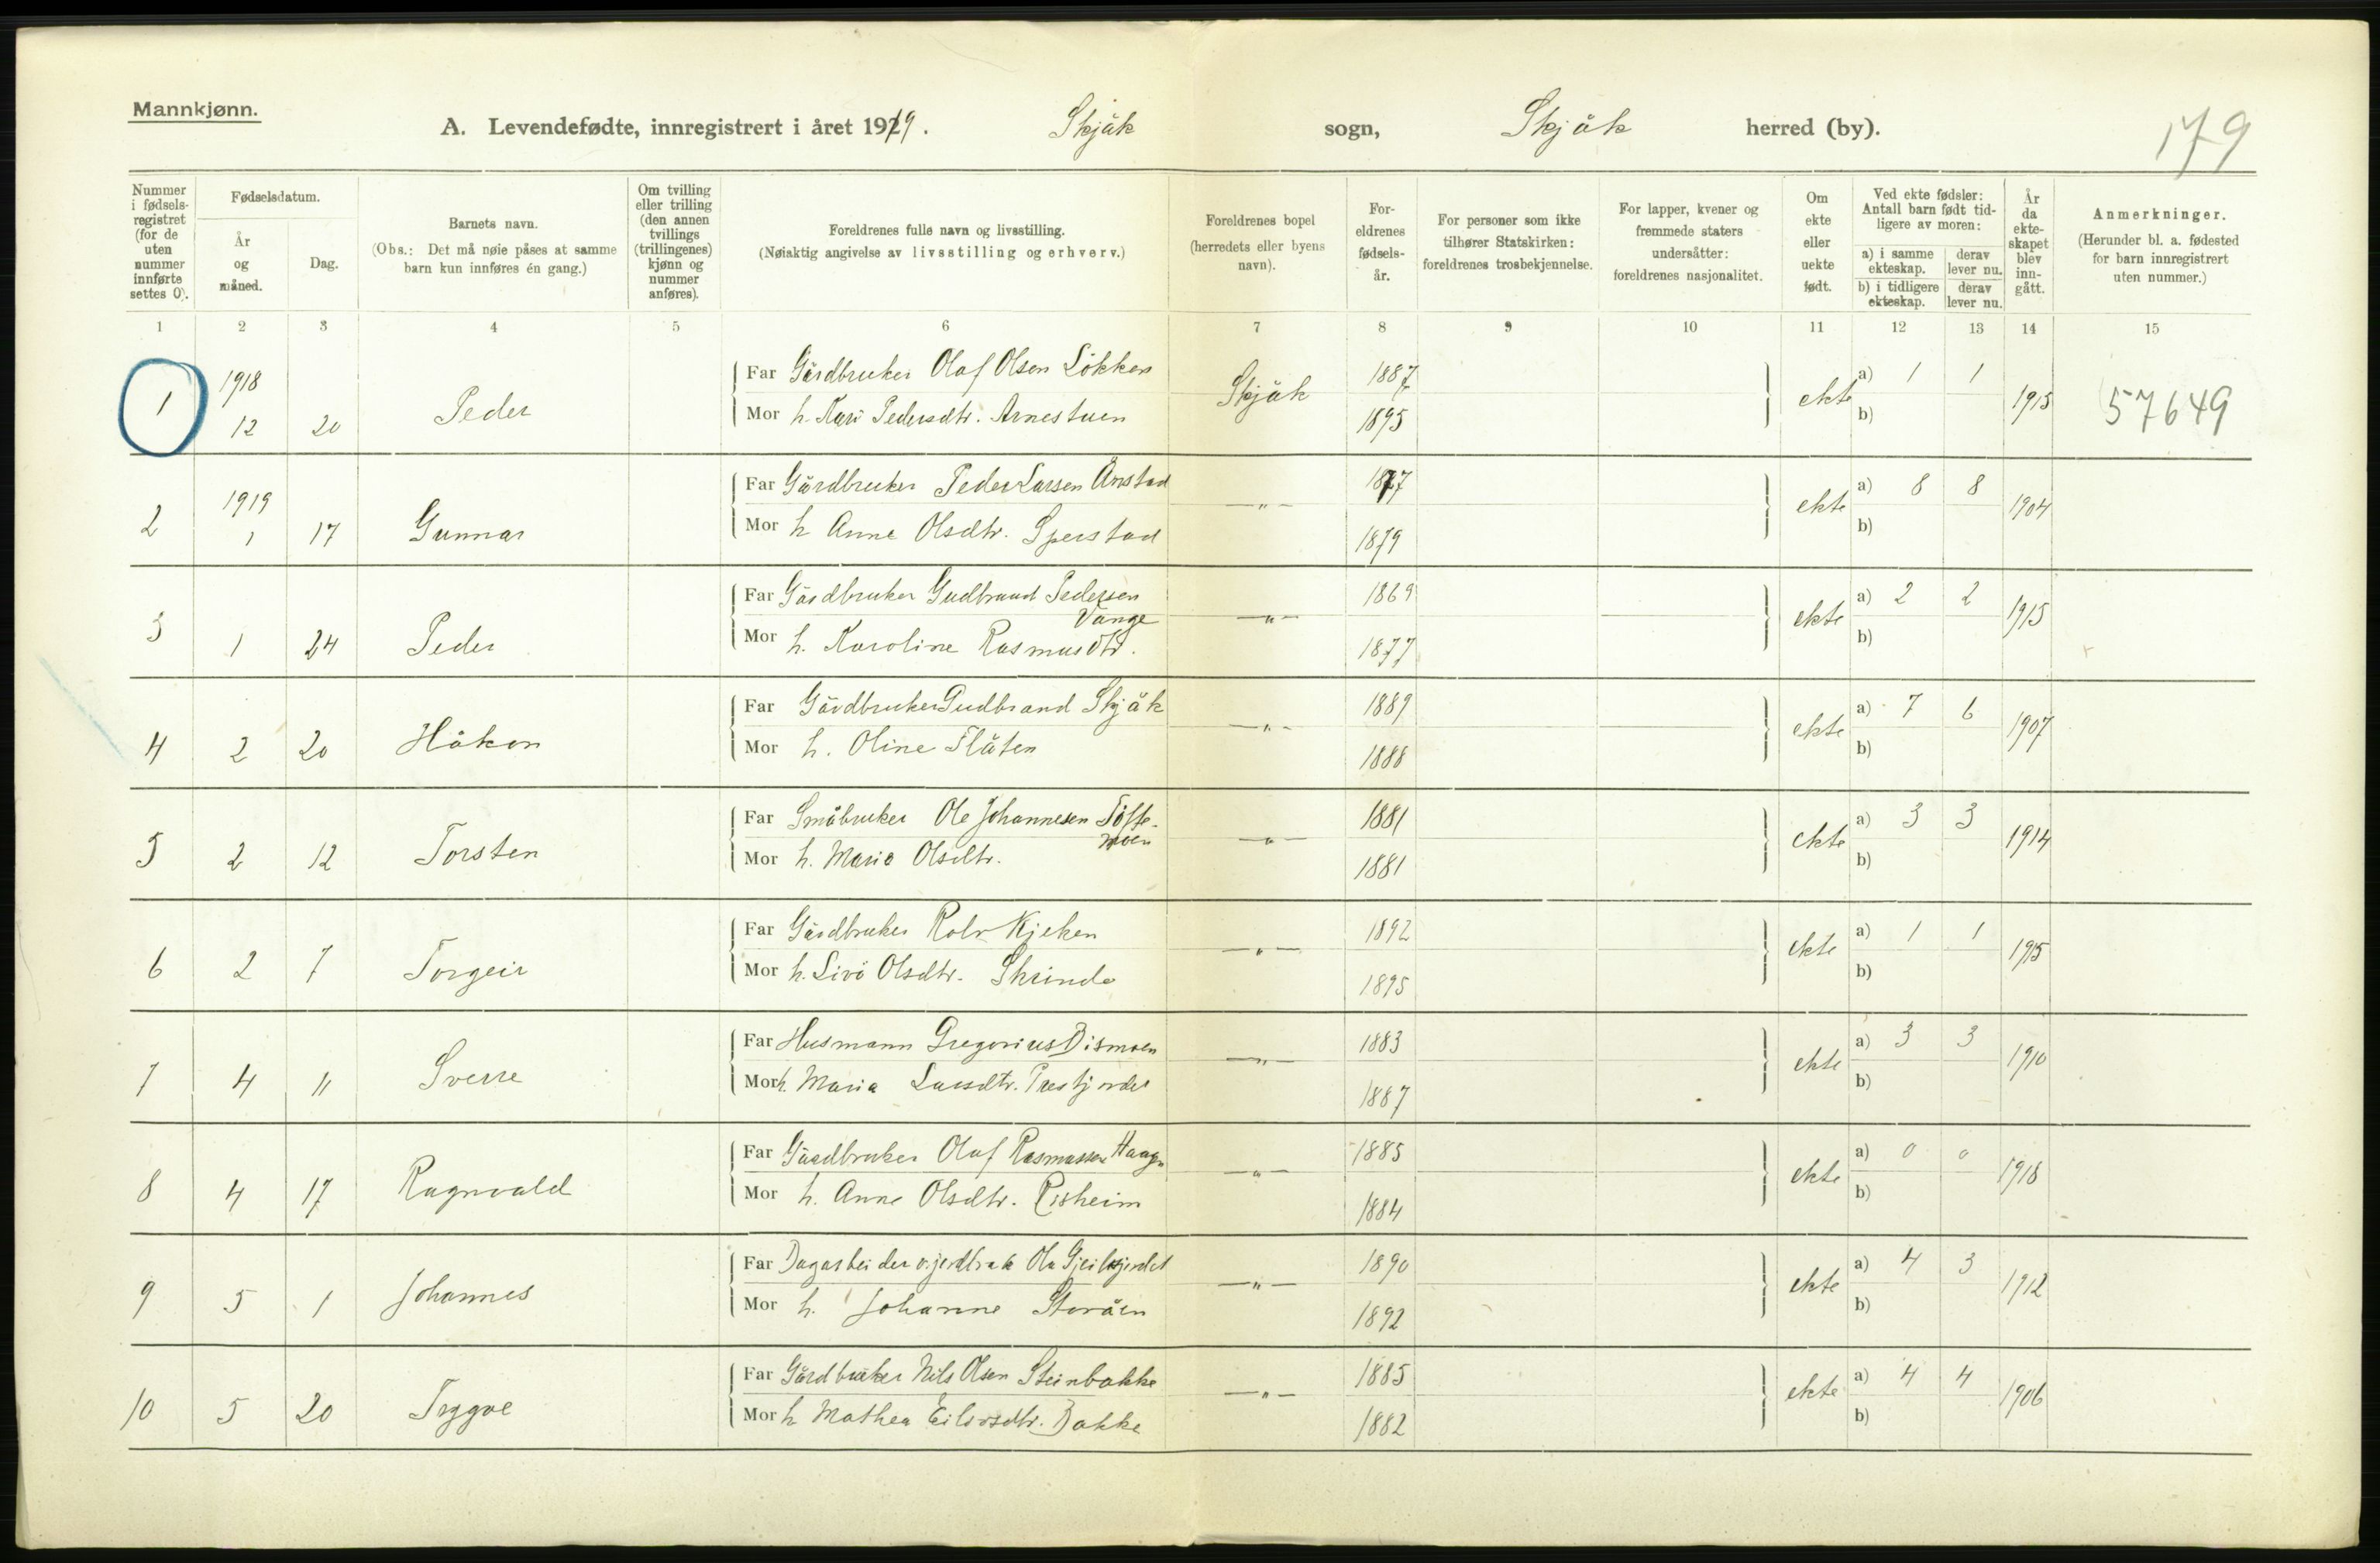 Mannkjønn.
A. Levendefødte, innregistrert i året 1919. Skjåk sogn, Skjåk herred (by).
179
Nummer i fødsels-registret (for de uten nummer innførte settes 0).
Fødselsdatum.
År og måned.
Dag.
Barnets navn.
(Obs.: Det må nøie påses at samme barn kun innføres én gang.)
Om tvilling eller trilling (den annen tvillings (trillingenes) kjønn og nummer anføres).
Foreldrenes fulle navn og livsstilling.
(Nøiaktig angivelse av livsstilling og erhverv.)
Foreldrenes bopel (herredets eller byens navn).
For-eldrenes fødsels-år.
For personer som ikke tilhører Statskirken: foreldrenes trosbekjennelse.
For lapper, kvener og fremmede staters undersåtter: foreldrenes nasjonalitet.
Om ekte eller uekte født.
Ved ekte fødsler: Antall barn født tid-ligere av moren:
a) i samme ekteskap. derav lever nu.
b) i tidligere ekteskap. derav lever nu.
År da ekte-skapet blev inn-gått.
Anmerkninger.
(Herunder bl. a. fødested for barn innregistrert uten nummer.)
1 2 3 4 5 6 7 8 9 10 11 12 13 14 15
1 1918 12 20 Peder
Far Gårdbruker Olaf Olsen Løkken Skjåk 1887 ekte a) 1 1 1915 57649
Mor h. Kari Pedersdtr. Arnestuen 1895 b)
2 1919 1 17 Gunnar
Far Gårdbruker Peder Larsen Ånstad -"- 1877 ekte a) 8 8 1904
Mor h Anne Olsdtr. Sperstad 1879 b)
3 1 24 Peder
Far Gårdbruker Gudbrand Pedersen Vange -"- 1869 ekte a) 2 2 1915
Mor h. Karoline Rasmusdtr. 1877 b)
4 2 20 Håkon
Far Gårdbruker Gudbrand Skjåk -"- 1889 ekte a) 7 6 1907
Mor h. Oline Flåten 1888 b)
5 2 12 Torsten
Far Småbruker Ole Johannesen Tofte-moen -"- 1881 ekte a) 3 3 1914
Mor h. Marie Olsdtr. 1881 b)
6 2 7 Torgeir
Far Gårdbruker Rolv Kjeken -"- 1892 ekte a) 1 1 1915
Mor h. Livö Olsdtr. Skrinde 1895 b)
7 4 11 Sverre
Far Husmann Gregorius Bismoen -"- 1883 ekte a) 3 3 1910
Mor h. Maria Larsdtr. 1887 b)
8 4 17 Ragnvald
Far Gårdbruker Olaf Rasmussen -"- 1885 ekte a) 0 0 1918
Mor h. Anne Olsdtr. Risheim 1884 b)
9 5 1 Johannes
Far Dagarbeider -"- 1890 ekte a) 4 3 1912
Mor h. Johanne Storåen 1892 b)
10 5 20 Tryggve
Far Gårdbruker Nils Olsen Steinbakke -"- 1885 ekte a) 4 4 1906
Mor h Mathea Eilivsdtr. Bakke 1882 b)